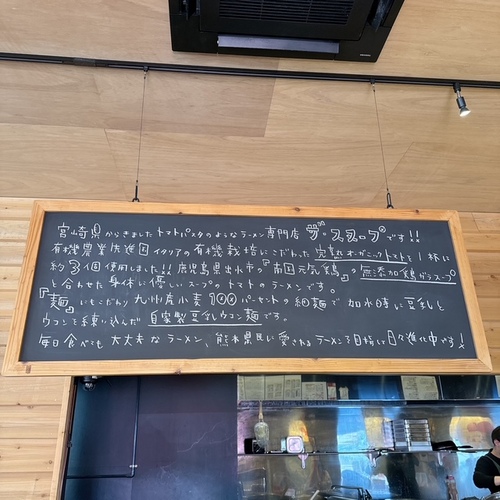 宮崎県からきました トマトパスタのようなラーメン専門店 ザ・スラーフ です!!
有機農業先進国イタリアの有機栽培にこだわった完熟オーガニックトマトを1杯に
約3個使用しました!! 鹿児島県出水市の『南国元気鶏』の無添加鶏ガラスープ
と合わせた身体に優しいスープのトマトのラーメンです。
『麺』にもこだわり九州産小麦100パーセントの細麺で 加水時に豆乳と
ウコンを練り込んだ 自家製豆乳ウコン麺です。
毎日食べても大丈夫なラーメン、熊本県民に愛されるラーメンを目指して日々進化中です!